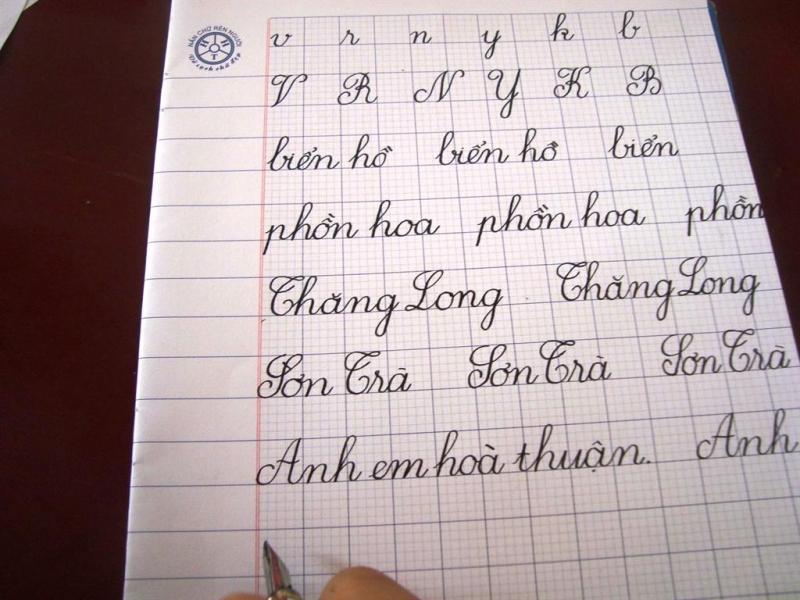 NẮN CHỮ RÈN NGƯỜI
v r n y k b
V R N Y K B
biển hồ biển hồ biển
phồn hoa phồn hoa phồn
Thăng Long Thăng Long
Sơn Trà Sơn Trà Sơn Trà
Anh em hoà thuận. Anh